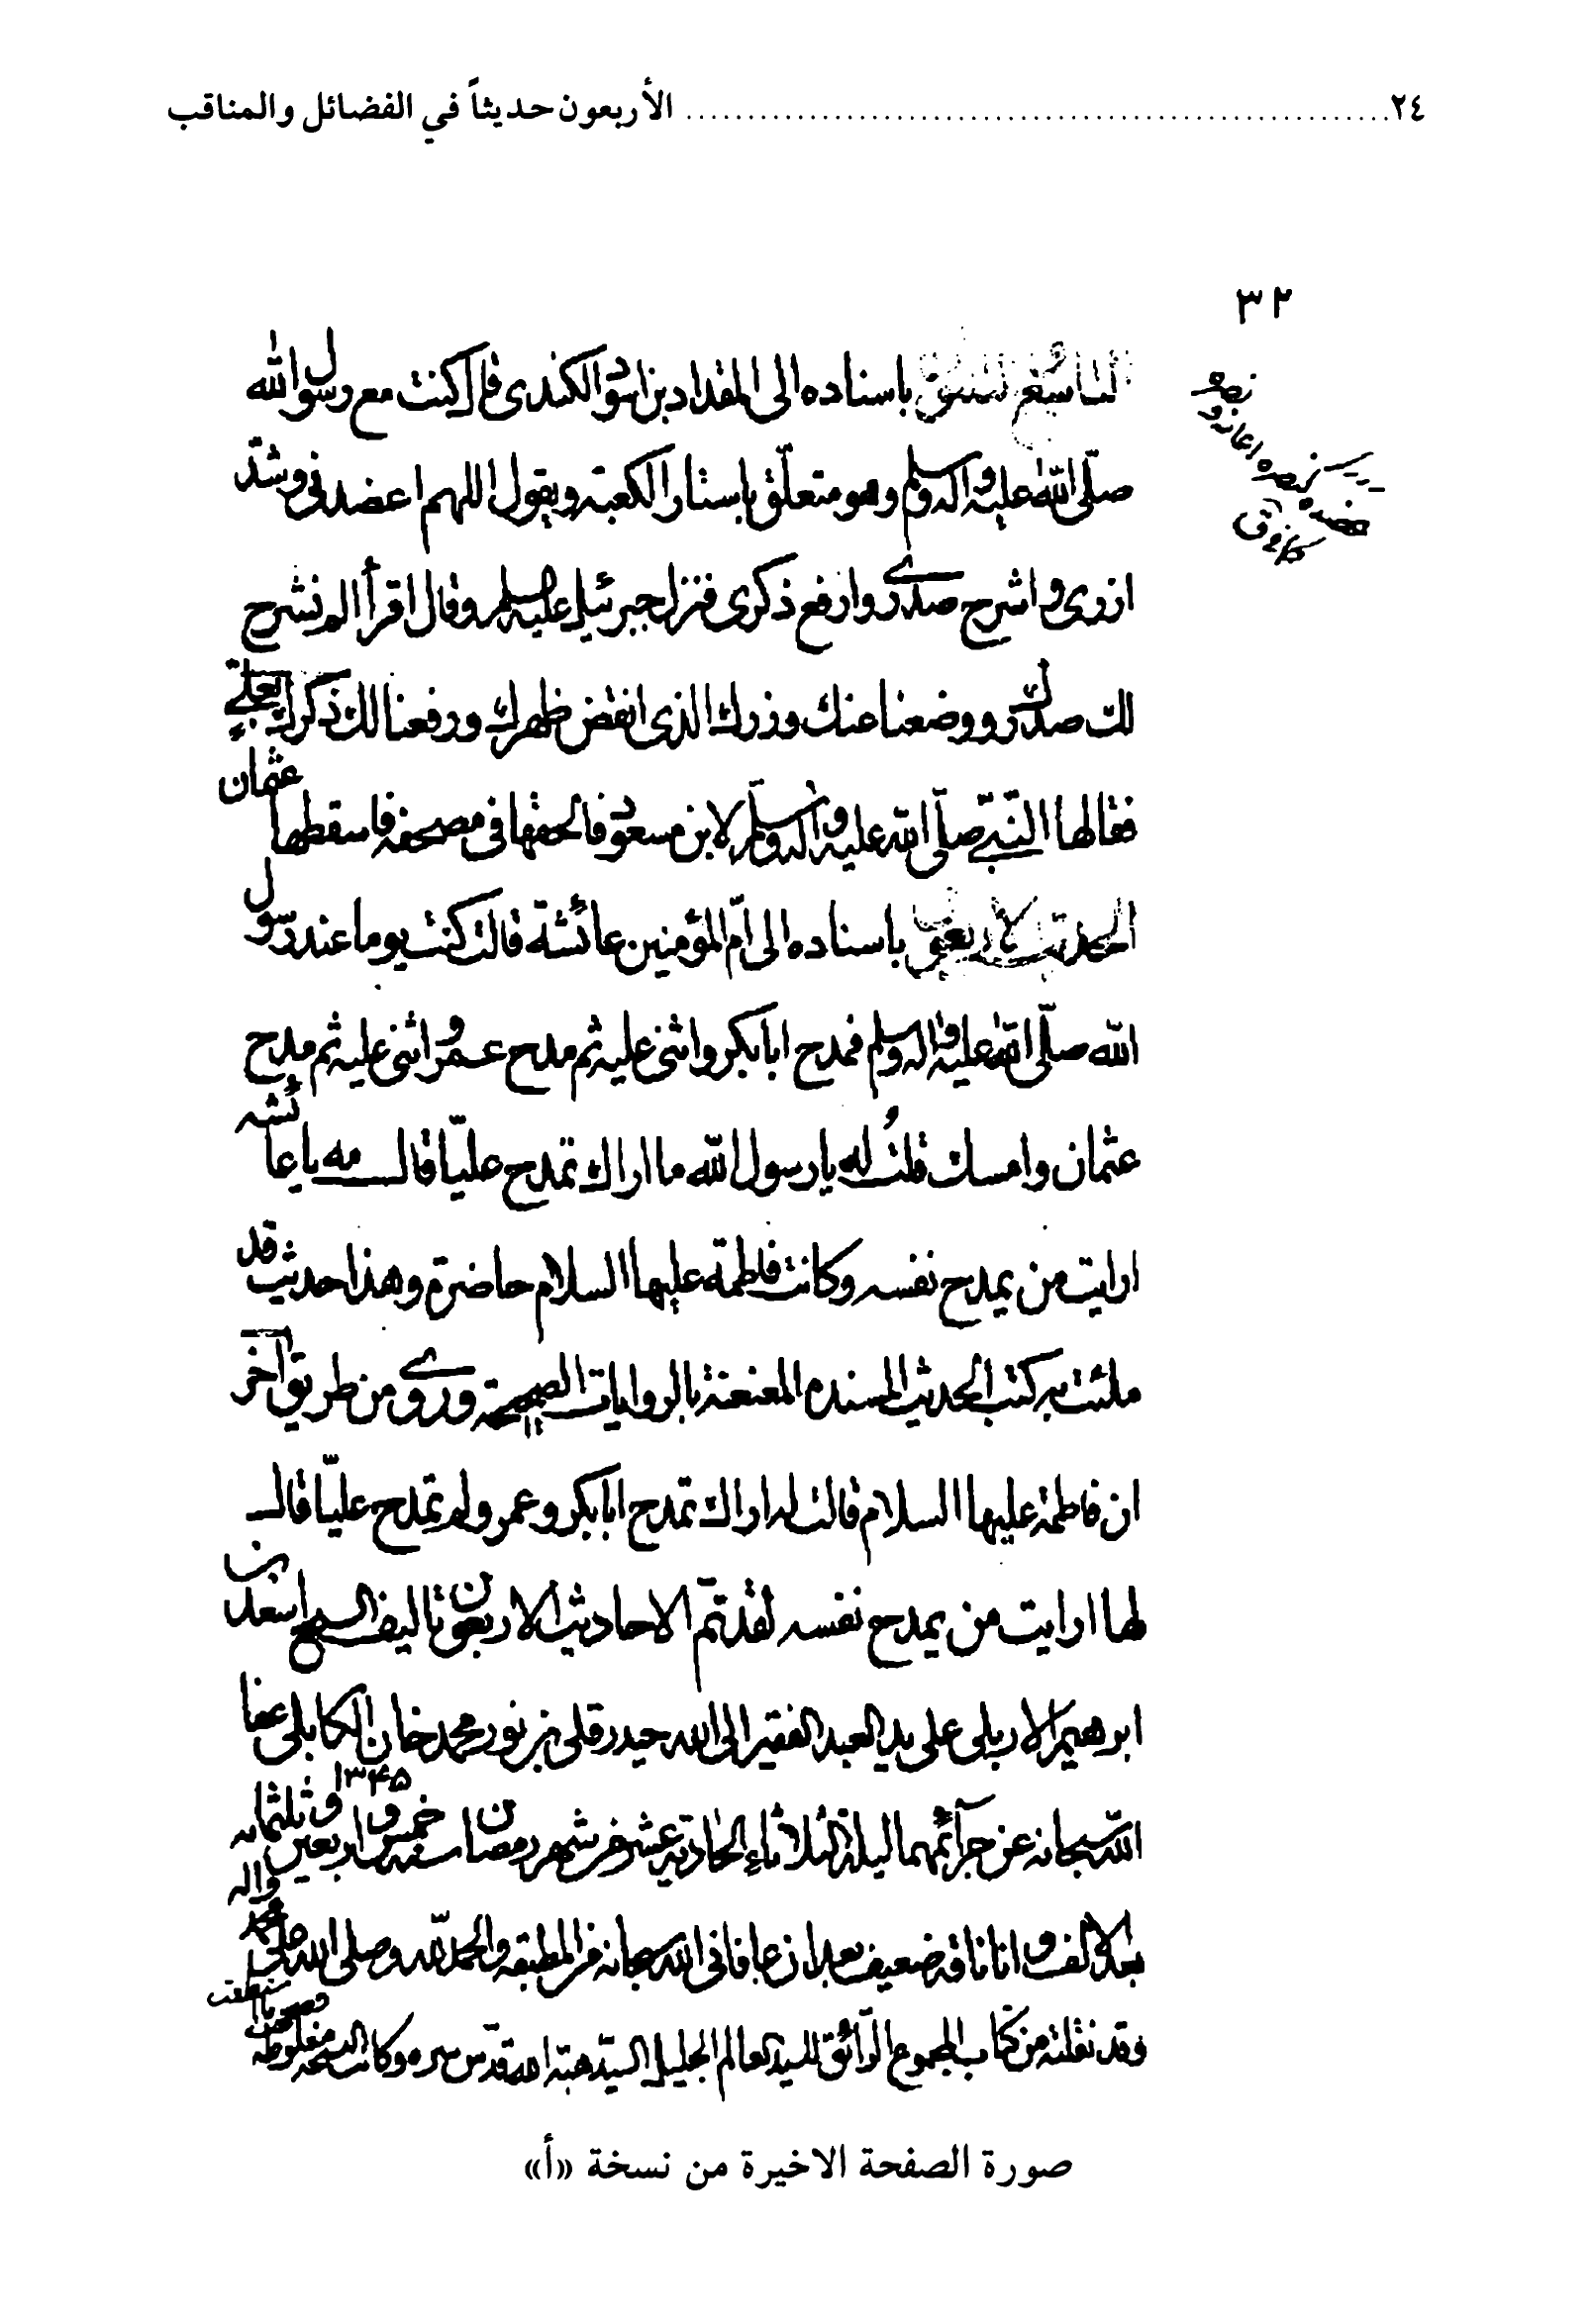 ٢٤ ........ الأربعون حديثاً في الفضائل والمناقب
٣٢
باسناده الى المقداد بن اسود الكندى قال كنت مع رسول الله
صلّى الله عليه و اله وسلم وهو متعلّق باستار الكعبة ويقول اللهم اعضدنى وشد
ازرى و اشرح صدرى وارفع ذكرى فنزل جبرئيل عليه السلم وقال اقرأ الم نشرح
لك صدرك ووضعنا عنك وزرك الذى انقض ظهرك ورفعنا لك ذكرك بعلى
فقالها النبى صلّى الله عليه و اله وسلم لابن مسعود فالحقها فى مصحفه فاسقطها عثمان
الحديث الاربعون باسناده الى امّ المؤمنين عائشة قالت كنت يوما عند رسول
الله صلّى الله عليه و اله وسلم فمدح ابا بكر واثنى عليه ثم مدح عمر و اثنى عليه ثم مدح
عثمان وامسك قلتُ له يا رسول الله ما اراك تمدح عليّا قال مه يا عائشه
ارايت من يمدح نفسه وكانت فاطمة عليها السلام حاضرة وهذا حديث قد
ملئت به كتب الحديث المسندة المعنعنة بالروايات الصحيحة وروى من طريق آخر
ان فاطمة عليها السلام قالت له اراك تمدح ابا بكر وعمر ولم تمدح عليّا قال
لها ارايت من يمدح نفسه لقد تمّ الاحاديث الاربعون تاليف الشيخ اسعد بن
ابرهيم الاربلى على يد العبد الفقير الى الله حيدر قلى بن نور محمد خان الكابلى عفا
الله سبحانه عن جرآئمهما ليلة الثلاثاء الحادية عشر من شهر رمضان سنة خمس و اربعين و ثلثمائه ١٣٤٥
بعد الالف و انا ناقه ضعيف بعد ان عافانى الله سبحانه من المطبقه والحمد لله وصلى الله على محمد واله
وقد نقلته من كتاب المجموع الرّائق للسيد العالم الجليل السيّد هبة الله قدّس سره وكانت النسخة مغلوطة
صورة الصفحة الاخيرة من نسخة «أ»